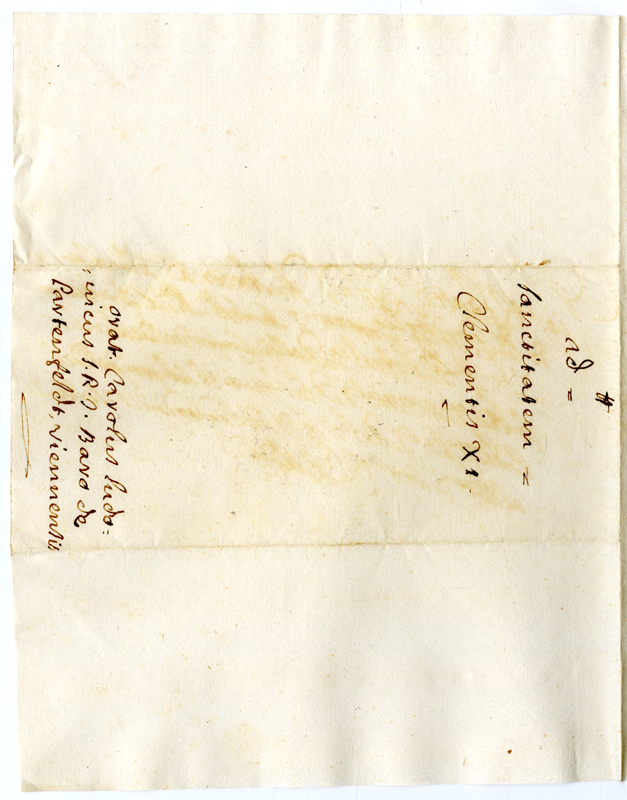 ad =
Sanctitatem =
Clementis XI.
orat. Carolus Ludo=
vicus S. R. I. Baro de
Partenfeldt, Viennensis